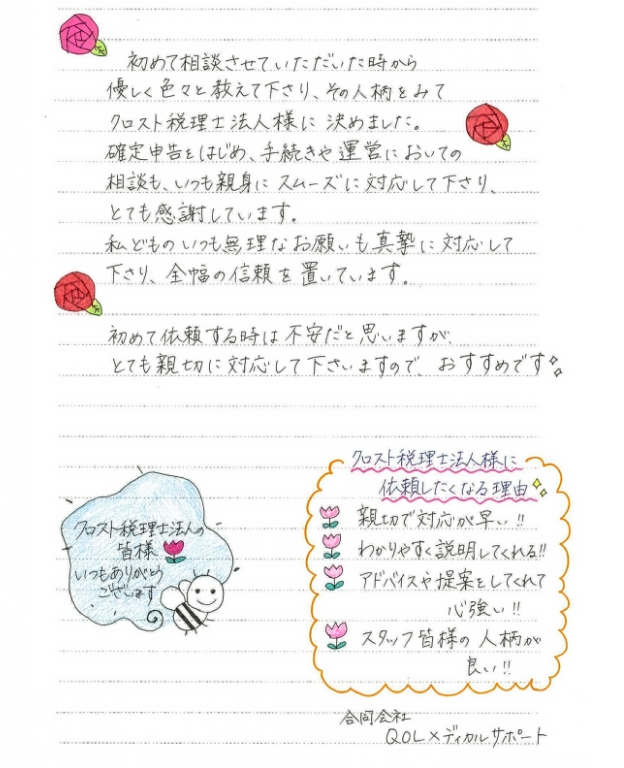 初めて相談させていただいた時から
優しく色々と教えて下さり、その人柄をみて
クロスト税理士法人様に決めました。
確定申告をはじめ、手続きや運営においての
相談も、いつも親身にスムーズに対応して下さり、
とても感謝しています。
私どものいつも無理なお願いも真摯に対応して
下さり、全幅の信頼を置いています。
初めて依頼する時は不安だと思いますが、
とても親切に対応して下さいますので、おすすめです
クロスト税理士法人の
皆様
いつもありがとう
ございます
クロスト税理士法人様に
依頼したくなる理由
親切で対応が早い!!
わかりやすく説明してくれる!!
アドバイスや提案をしてくれて
心強い!!
スタッフ皆様の人柄が
良い!!
合同会社
QOLメディカルサポート